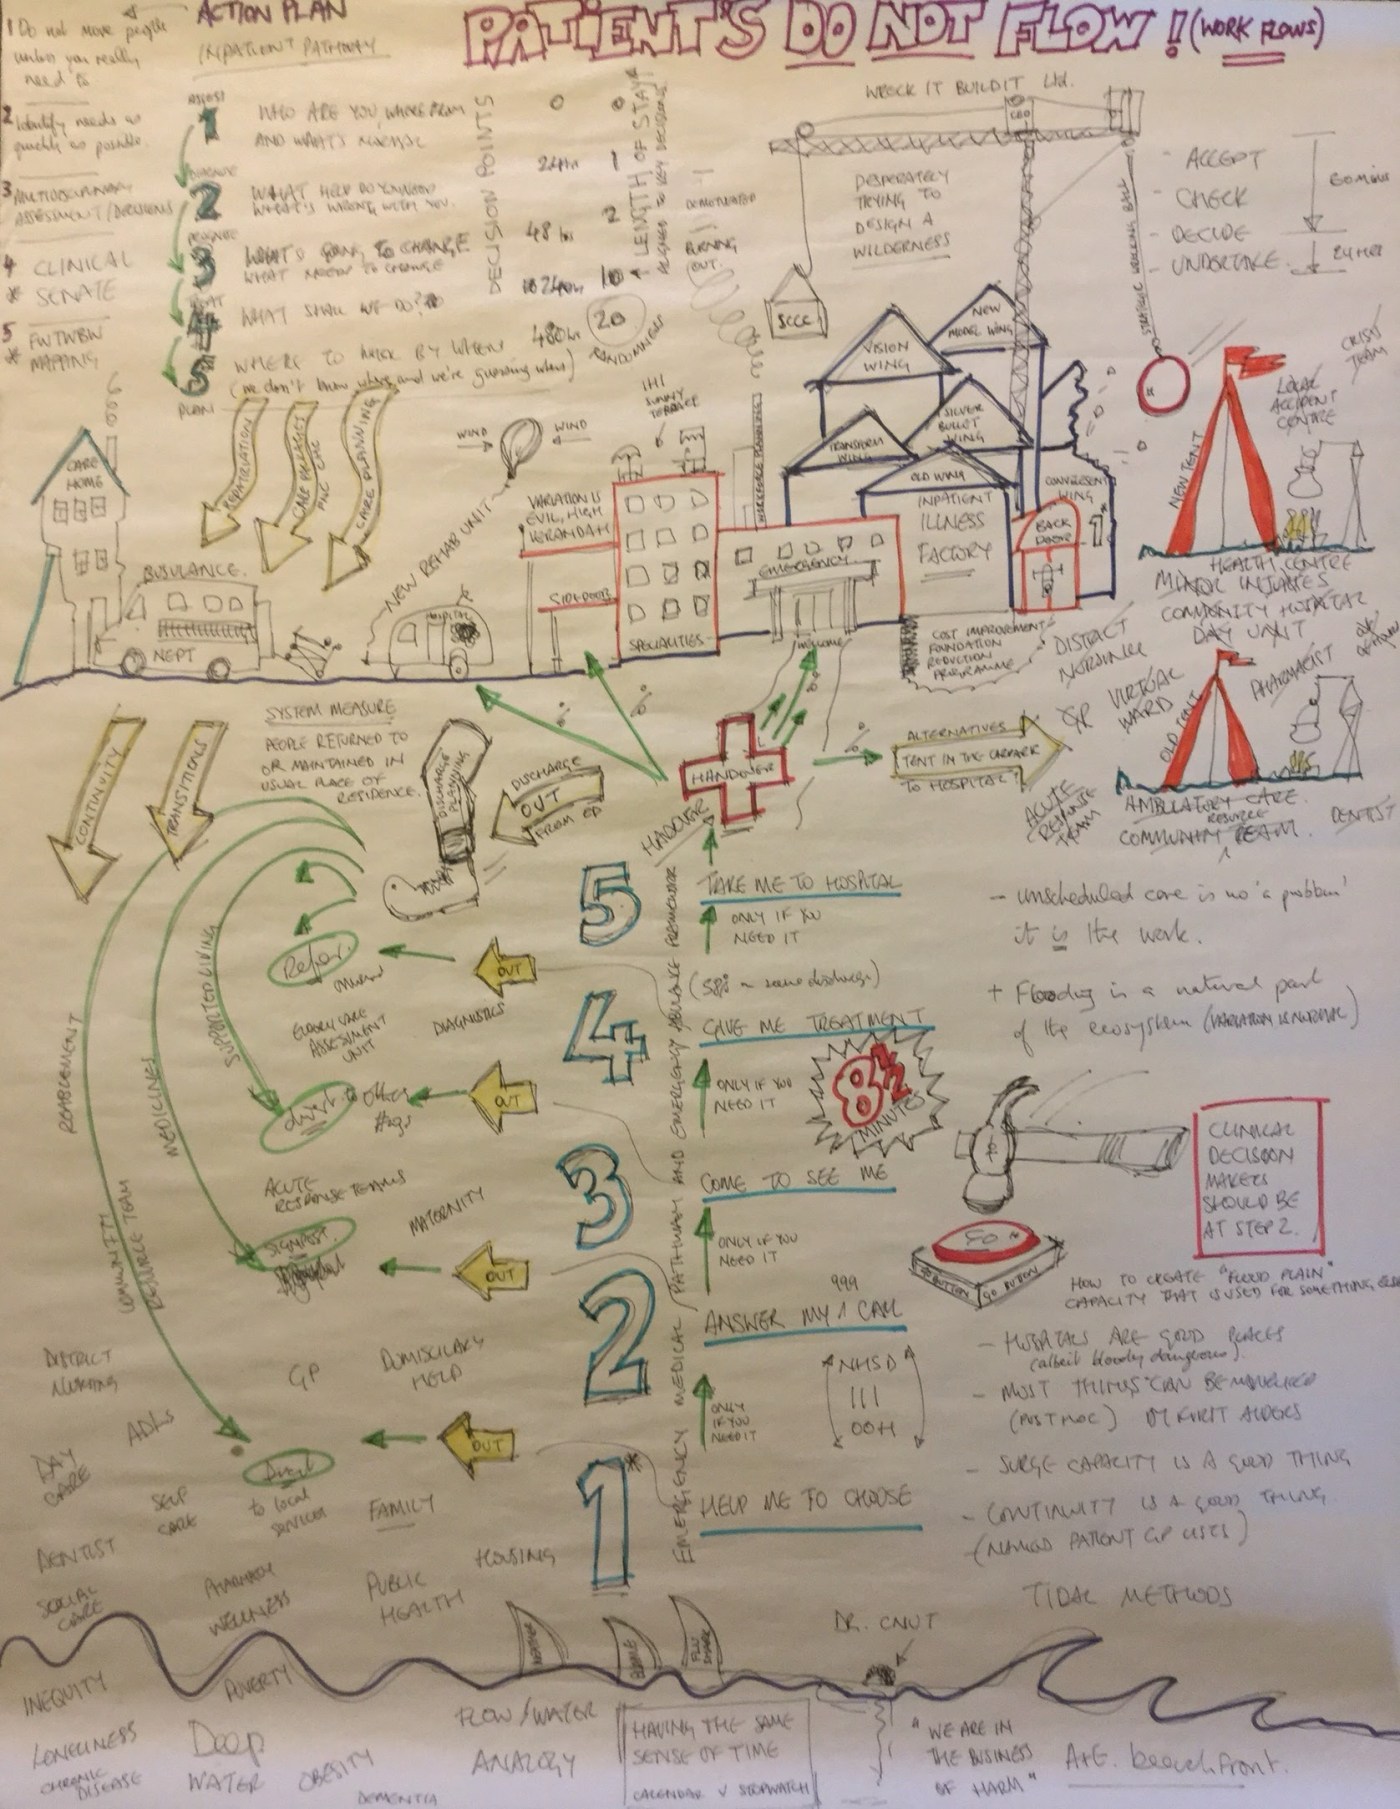 PATIENT'S DO NOT FLOW! (WORK FLOWS)
ACTION PLAN
INPATIENT PATHWAY
1 Do not move people
unless you really
need to
2 Identify needs as
quickly as possible.
3 MULTIDISCIPLINARY
ASSESSMENT/DECISIONS
4 CLINICAL
* SENATE
5 FWTWBW
* MAPPING
ASSESS
1
WHO ARE YOU WHERE FROM
AND WHAT'S NORMAL
2
WHAT HELP DO YOU NEED
WHAT'S WRONG WITH YOU.
3
WHAT'S GOING TO CHANGE
WHAT NEEDS TO CHANGE
TREAT
4
WHAT SHALL WE DO?
5
WHERE TO BY WHEN
(we don't know where and we're guessing when)
PLAN
DECISION POINTS
0
48 hrs
480 hrs
LENGTH OF STAY
ALIGNED TO KEY DECISIONS
0
1
2
10
20
RANDOMNESS
BURNING
OUT.
WRECK IT BUILD IT Ltd.
CEO
DESPERATELY
TRYING TO
DESIGN A
WILDERNESS
SCCC
STRATEGIC WRECKING BALL
- ACCEPT
- CHECK
- DECIDE
- UNDERTAKE
60 mins
24 HRS
CARE
HOME
REPATRIATION
CARE PACKAGES
FNC CHC
CARE PLANNING
WIND
WIND
SUNNY
TERRACE
VARIATION IS
EVIL, HIGH
VERANDAH
NEW REHAB UNIT
BUSULANCE.
NEPT
HOSPITAL
SIDE DOOR
SPECIALITIES
EMERGENCY
WELCOME
VISION
WING
NEW
MODEL WING
SILVER
BULLET
WING
TRANSFORM
WING
OLD WING
INPATIENT
ILLNESS
FACTORY
BACK
DOOR
COST IMPROVEMENT
FOUNDATION
REDUCTION
PROGRAMME
NEW TENT
LOCAL
ACCIDENT
CENTRE
CRISIS
TEAM
HEALTH CENTRE
MINOR INJURIES
COMMUNITY HOSPITAL
DAY UNIT
DISTRICT
NURSING
VIRTUAL
WARD
GP
PHARMACIST
OLD TENT
ACUTE
RESPONSE
TEAM
AMBULATORY CARE.
RESOURCE
COMMUNITY TEAM.
DENTIST
CONTINUITY
TRANSITIONS
SYSTEM MEASURE
PEOPLE RETURNED TO
OR MAINTAINED IN
USUAL PLACE OF
RESIDENCE.
DISCHARGE
PLANNING
DISCHARGE
OUT
FROM ED
%
%
%
%
HANDOVER
ALTERNATIVES
TENT IN THE CARPARK
TO HOSPITAL?
EMERGENCY MEDICAL PATHWAY AND EMERGENCY AMBULANCE FRAMEWORK
5
TAKE ME TO HOSPITAL
ONLY IF YOU
NEED IT
4
GIVE ME TREATMENT
ONLY IF YOU
NEED IT
8 1/2
MINUTES
3
COME TO SEE ME
ONLY IF YOU
NEED IT
2
999
ANSWER MY CALL
NHSD
111
OOH
ONLY
IF YOU
NEED IT
1*
HELP ME TO CHOOSE
OUT
OUT
OUT
OUT
Refer
ELDERLY CARE
ASSESSMENT
UNIT
DIAGNOSTICS
to other
ACUTE
RESPONSE TEAMS
MATERNITY
SIGNPOST.
GP
DOMICILIARY
HELP
to local
services
FAMILY
REABLEMENT
MEDICINES
SUPPORTED LIVING
COMMUNITY
RESOURCE TEAM
DISTRICT
NURSING
ADLs
DAY
CARE
SELF
CARE
DENTIST
SOCIAL
CARE
PHARMACY
WELLNESS
PUBLIC
HEALTH
HOUSING
- unscheduled care is no 'a problem'
it is the work.
+ Flooding is a natural part
of the ecosystem (VARIATION IS NORMAL)
CLINICAL
DECISION
MAKERS
SHOULD BE
AT STEP 2.
GO
GO BUTTON
GO BUTTON
HOW TO CREATE "FLOOD PLAIN"
CAPACITY THAT IS USED FOR SOMETHING ELSE
- HOSPITALS ARE GOOD PLACES
(albeit bloody dangerous).
- MOST THINGS CAN BE MANAGED
(POST HOC)
- SURGE CAPACITY IS A GOOD THING
- CONTINUITY IS A GOOD THING
- (NAMED PATIENT GP LISTS)
TIDAL METHODS
DR. CNUT
WEATHER
FLU
SHARK
INEQUITY
POVERTY
LONELINESS
CHRONIC
DISEASE
Deep
WATER
OBESITY
DEMENTIA
FLOW/WATER
ANALOGY
HAVING THE SAME
SENSE OF TIME
CALENDAR V STOPWATCH
"WE ARE IN
THE BUSINESS
OF HARM"
A+E. beachfront.